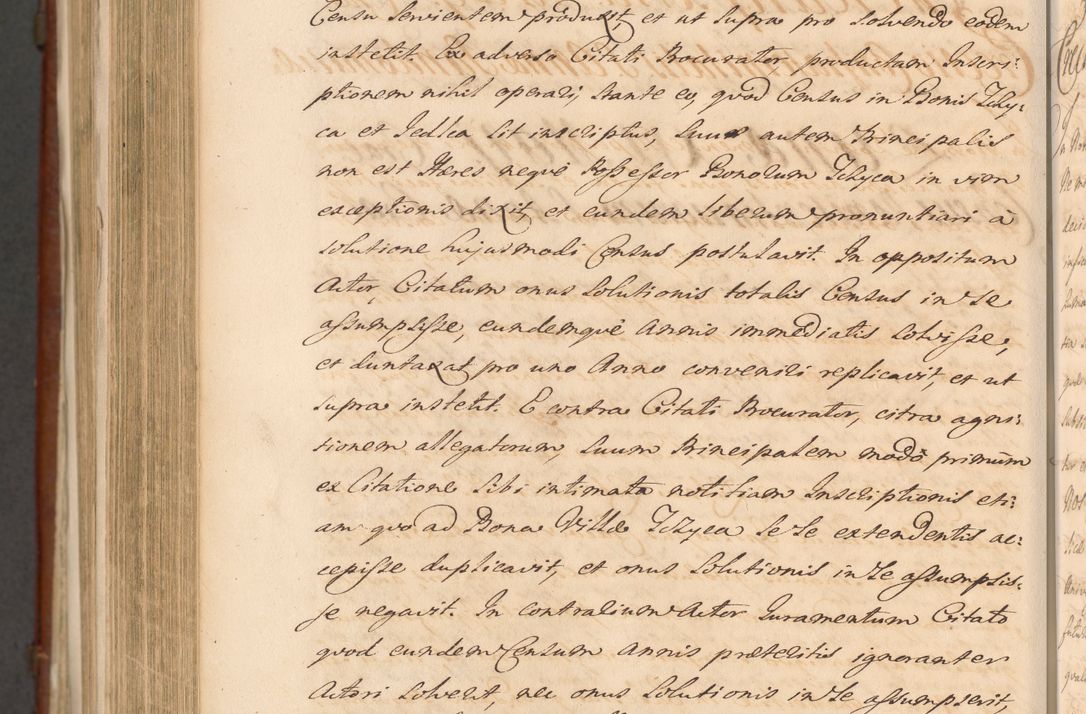 Censu servientem produxit, et ut supra pro solvendo eodem
institit. Ex adverso Citati Procurator, productam Inscri:
ptionem nihil operari, stante eo, quod Census in Bonis Tczy:
ca et Jedlca sit inscriptus, suus autem Principalis
non est Hæres neque Possessor Bonorum Tczyca in vim
exceptionis dixit, et eundem liberum pronuntiari à
solutione hujusmodi Census postulavit. In oppositum
Actor, Citatum onus solutionis totalis Census in se
assumpsisse, eundemquè Annis immediatis solvisse,
et duntaxat pro uno Anno conveniri replicavit, et ut
supra institit. E contra Citati Procurator, citra agni:
tionem allegatorum, suum Principalem modò primùm
ex Citatione sibi intimata notitiam Inscriptionis eti:
am quo ad Bona Villæ Tczyca se se extendentis ac:
cepisse duplicavit, et onus solutionis in se assumpsis:
se negavit. In contrarium Actor Juramentum Citato
quod eundem Censum annis præteritis ignoranter
Actori solverit, nec onus solutionis in se assumpserit,